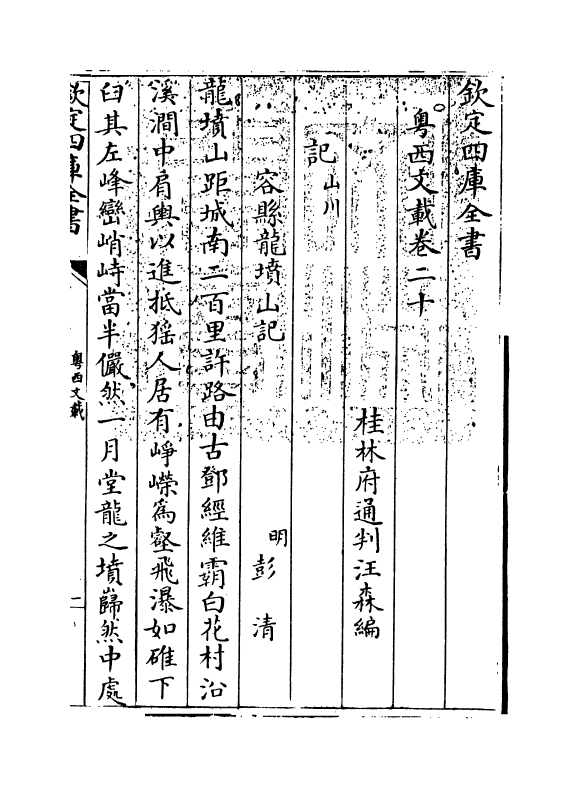 欽定四庫全書
粵西文載卷二十
桂林府通判汪森編
記山川
容縣龍墳山記
明彭清
龍墳山距城南二百里許路由古鄧經維霸白花村沿
溪澗中肩輿以進抵猺人居有崢嶸為壑飛瀑如碓下
臼其左峰巒峭峙當半儼然一月堂龍之墳巋然中處
欽定四庫全書
粵西文載